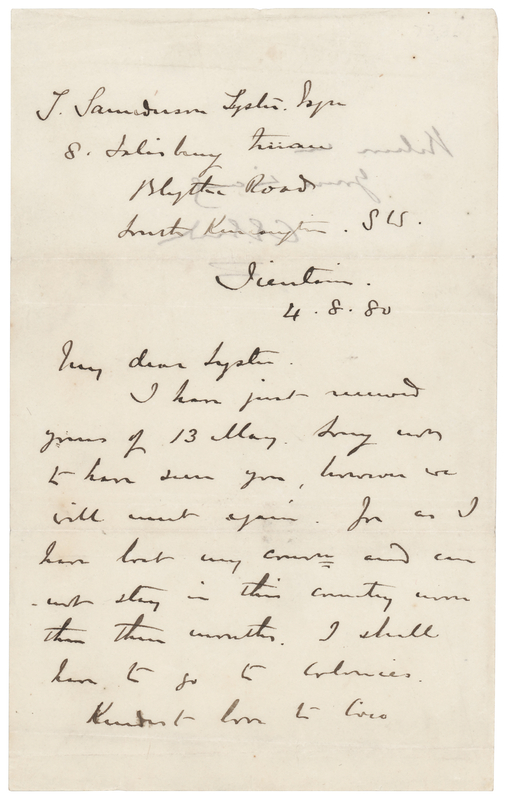 T. Saunderson Lyster. Esqre
8. Salisbury Terrace
Blythe Road
South Kensington. SW.
Tientsin.
4.8.80
My dear Lyster.
I have just received
yours of 13 May. Sorry not
to have seen you, however we
will meet again. for as I
have lost my commn and can
not stay in this country more
than three months. I shall
have to go to Colonies.
Kindest love to Coco